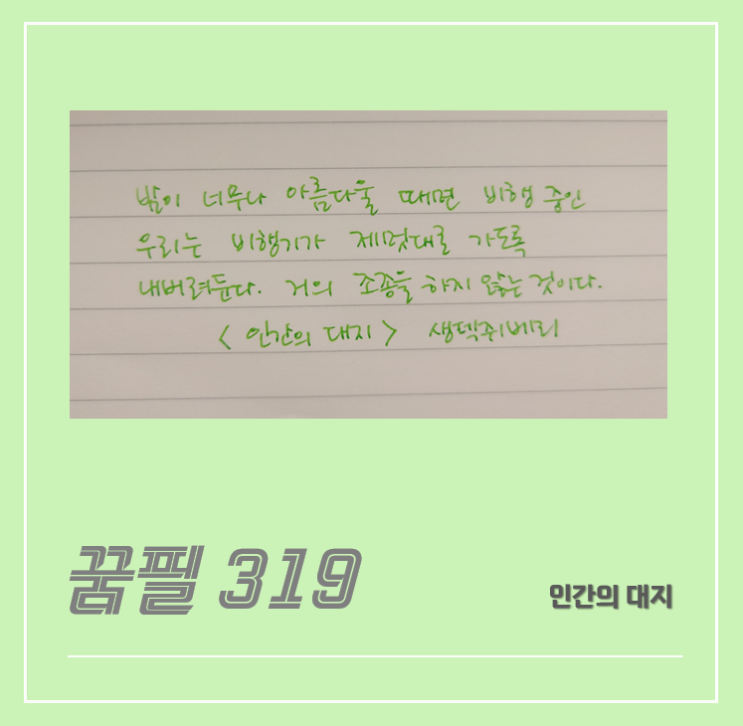 밤이 너무나 아름다울 때면 비행 중인
우리는 비행기가 제멋대로 가도록
내버려둔다. 거의 조종을 하지 않는 것이다.
<인간의 대지> 생덱쥐베리
꿈필 319
인간의 대지